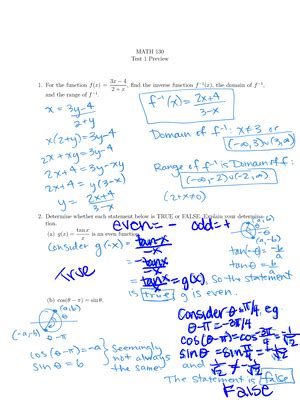 MATH 130
Test 1 Preview
1. For the function f(x) = (3x − 4)/(2 + x), find the inverse function f⁻¹(x), the domain of f⁻¹,
and the range of f⁻¹.
x = (3y-4)/(2+y)
x(2+y) = 3y-4
2x + xy = 3y-4
2x+4 = 3y-xy
2x+4 = y(3-x)
y = (2x+4)/(3-x)
f⁻¹(x) = (2x+4)/(3-x)
Domain of f⁻¹: x≠3 or
(-∞,3)∪(3,∞)
Range of f⁻¹ is Domain of f:
(-∞,-2)∪(-2,∞)
(2+x≠0)
2. Determine whether each statement below is TRUE or FALSE. Explain your determina-
tion.
even = - odd = +
(a) g(x) = tan x / x is an even function.
Consider g(-x) = tan(-x)/-x
= -tan x/-x
= tan x/x = g(x). So the statement
is true g is even.
True
(a,b)
θ
-θ
(a,-b)
tan θ = b/a
(b) cos(θ − π) = sin θ.
(a,b)
θ
(-a,-b)
cos(θ-π) = -a
sin θ = b
Seemingly
not always
the same
Consider θ=π/4, eg
θ-π = -3π/4
cos(θ-π) = cos -3π/4 = -1/√2
sin θ = sin π/4 = 1/√2
and -1/√2 ≠ 1/√2
The statement is false
False